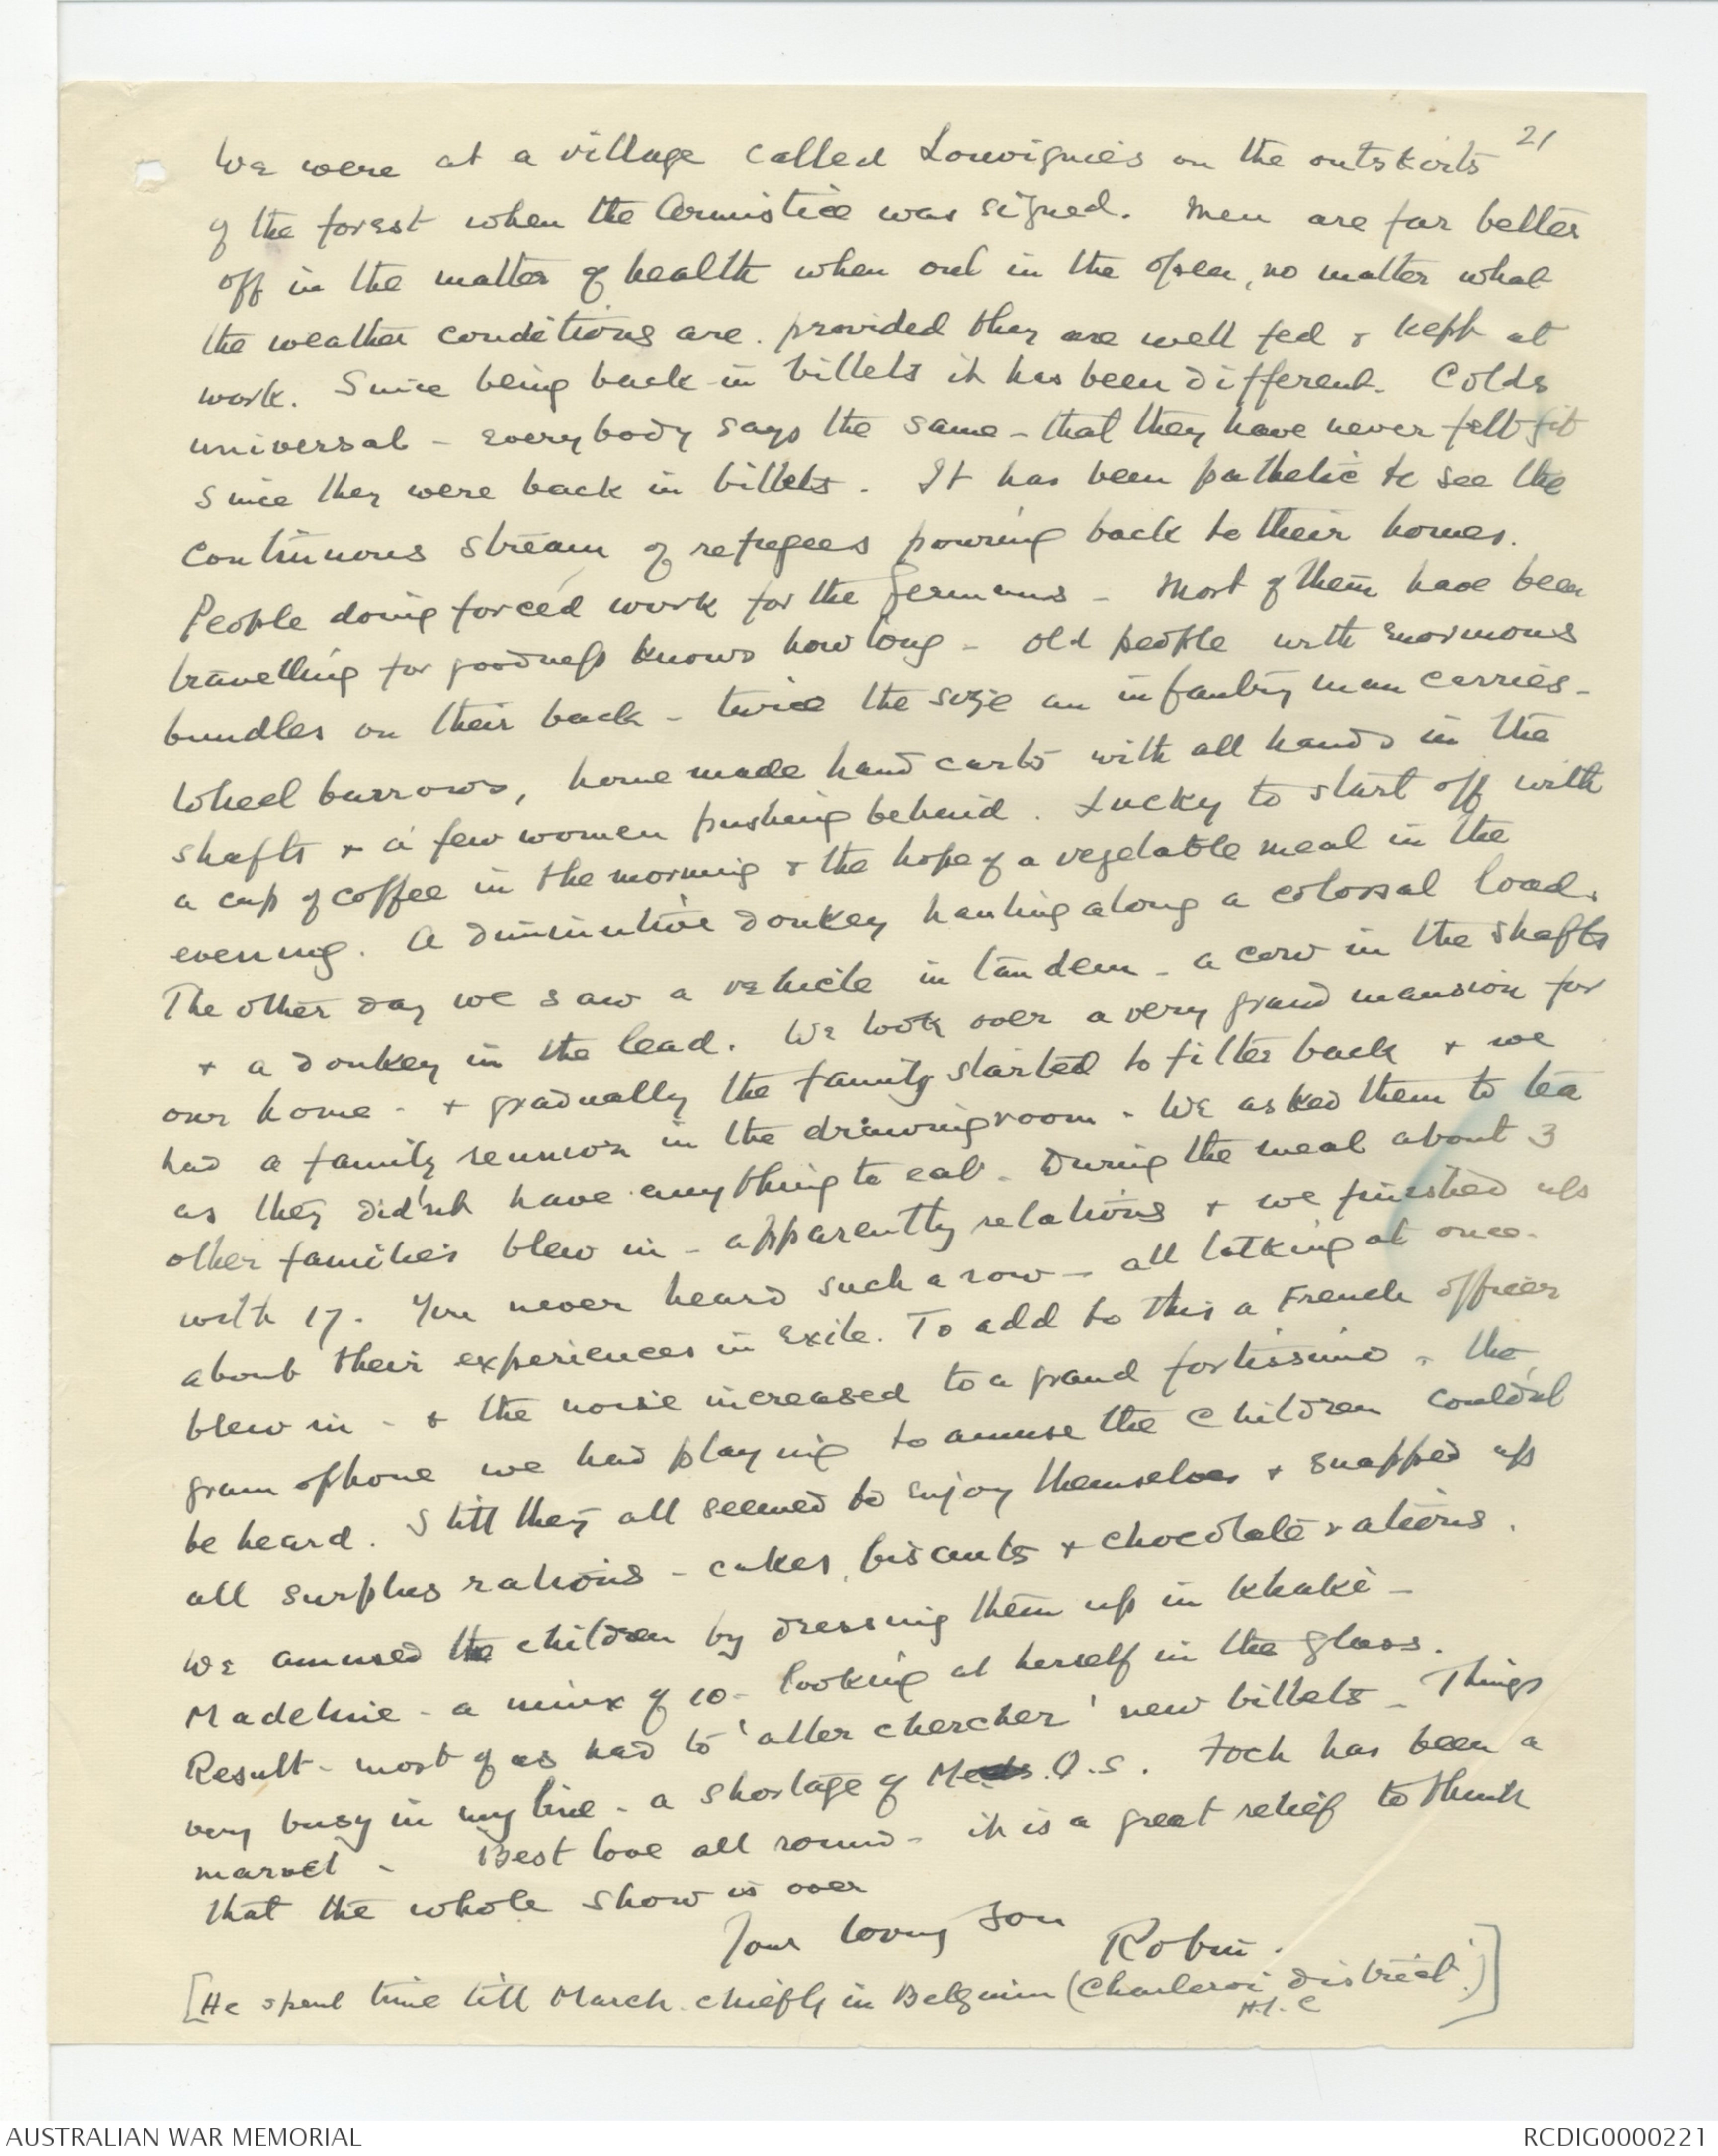 21
We were at a village called Louvignies on the outskirts
of the forest when the Armistice was signed. Men are far better
off in the matter of health when out in the open, no matter what
the weather conditions are. provided they are well fed & kept at
work. Since being back in billets it has been different. Colds
universal - everybody says the same - that they have never felt fit
since they were back in billets. It has been pathetic to see the
continuous stream of refugees pouring back to their homes.
People doing forced work for the Germans - Most of them have been
travelling for goodness knows how long - old people with enormous
bundles on their back - twice the size an infantry man carries -
Wheel barrows, home made hand carts with all hands in the
shafts & a few women pushing behind. Lucky to start off with
a cup of coffee in the morning & the hope of a vegetable meal in the
evening. A diminutive donkey hauling along a colossal load.
The other day we saw a vehicle in tandem - a cow in the shafts
& a donkey in the lead. We took over a very grand mansion for
our home - & gradually the family started to filter back & we
had a family reunion in the drawing room - We asked them to tea
as they did'nt have anything to eat - During the meal about 3
other families blew in - apparently relations & we finished up
with 17. You never heard such a row - all talking at once -
about their experiences in exile. To add to this a French officer
blew in - & the noise increased to a grand fortissimo - the
gramophone we had playing to amuse the children could'nt
be heard. Still they all seemed to enjoy themselves & snapped up
all surplus rations - cakes, biscuits & chocolate rations.
We amused the children by dressing them up in khaki -
Madeline - a minx of 10 - looking at herself in the glass.
Result - most of us had to 'aller chercher' new billets - Things
very busy in my line - a shortage of M.O.S. Foch has been a
marvel - Best love all round - it is a great relief to think
that the whole show is over
Your loving son
Robin.
[He spent time till March chiefly in Belgium (Charleroi district.)]
H.I.C
AUSTRALIAN WAR MEMORIAL
RCDIG0000221